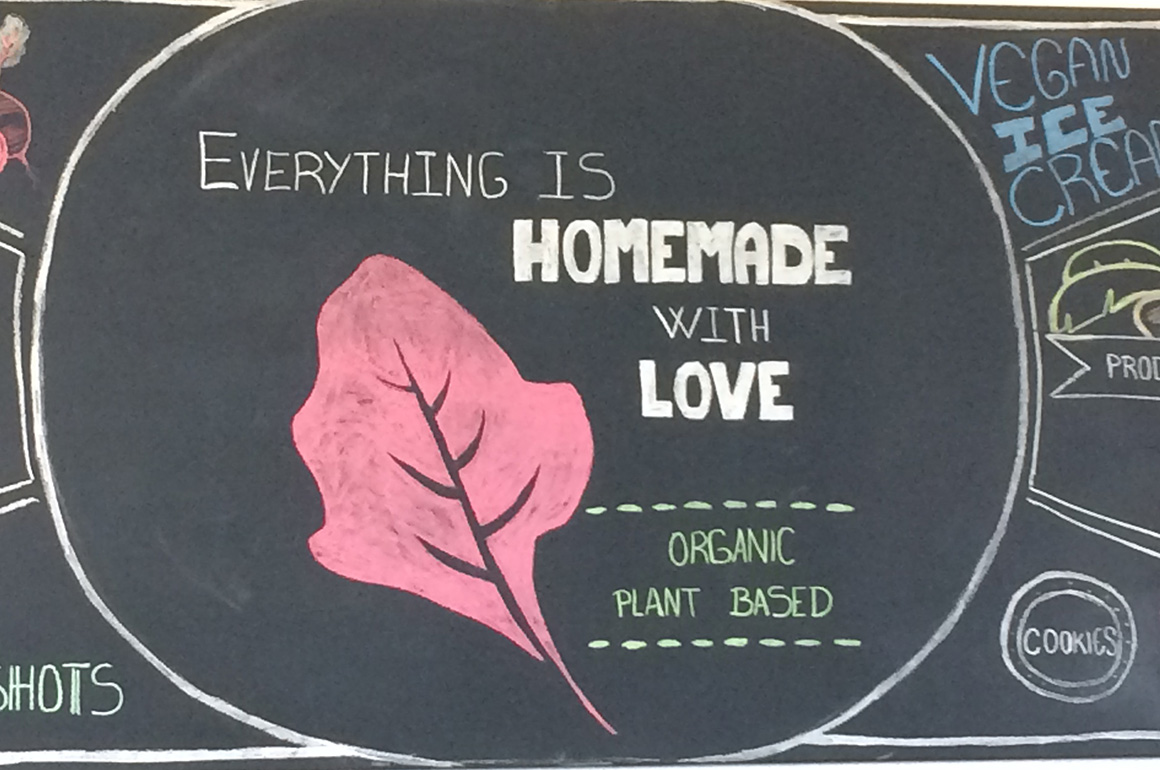 EVERYTHING IS
HOMEMADE
WITH
LOVE
ORGANIC
PLANT BASED
VEGAN
ICE
COOKIES
SHOTS